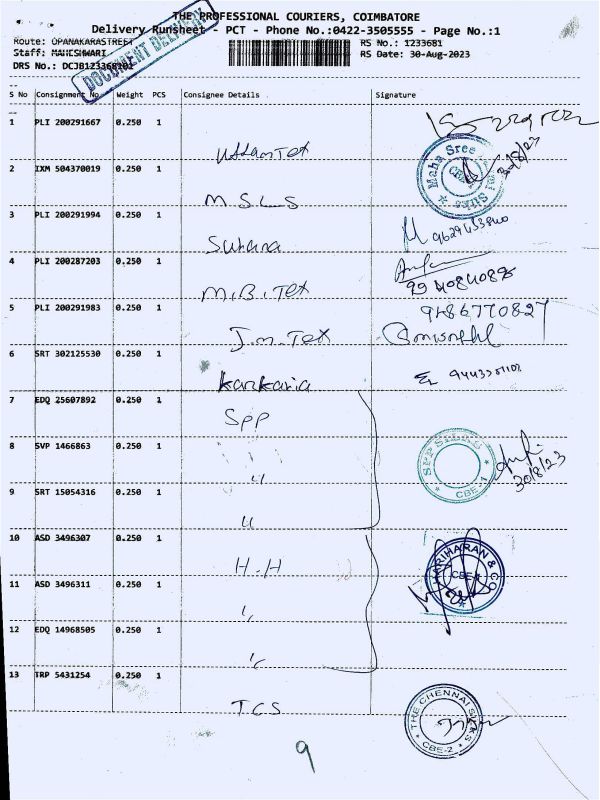 THE PROFESSIONAL COURIERS, COIMBATORE
Delivery Runsheet - PCT - Phone No.:0422-3505555 - Page No.:1
Route: OPANAKARASTREET RS No.: 1233681
Staff: MAHESHWARI RS Date: 30-Aug-2023
DRS No.: DCJB123368101
DOCUMENT DELIVERY
S No Consignment No. Weight PCS Consignee Details Signature
1 PLI 200291667 0.250 1
UttamTex
Maha Sree
30/8/23
2 IXM 504370019 0.250 1
M S L S
3 PLI 200291994 0.250 1
Suhana
4 PLI 200287203 0.250 1
M.B.Tex
5 PLI 200291983 0.250 1
J.M.Tex
6 SRT 302125530 0.250 1
Kankaria
7 EDQ 25607892 0.250 1
SPP
8 SVP 1466863 0.250 1
"
SPP SILKS
CBE-1
30/8/23
9 SRT 15054316 0.250 1
"
10 ASD 3496307 0.250 1
H.H
HARIHARAN & CO
11 ASD 3496311 0.250 1
"
12 EDQ 14968505 0.250 1
"
13 TRP 5431254 0.250 1
TCS
THE CHENNAI SILKS
CBE-2
9